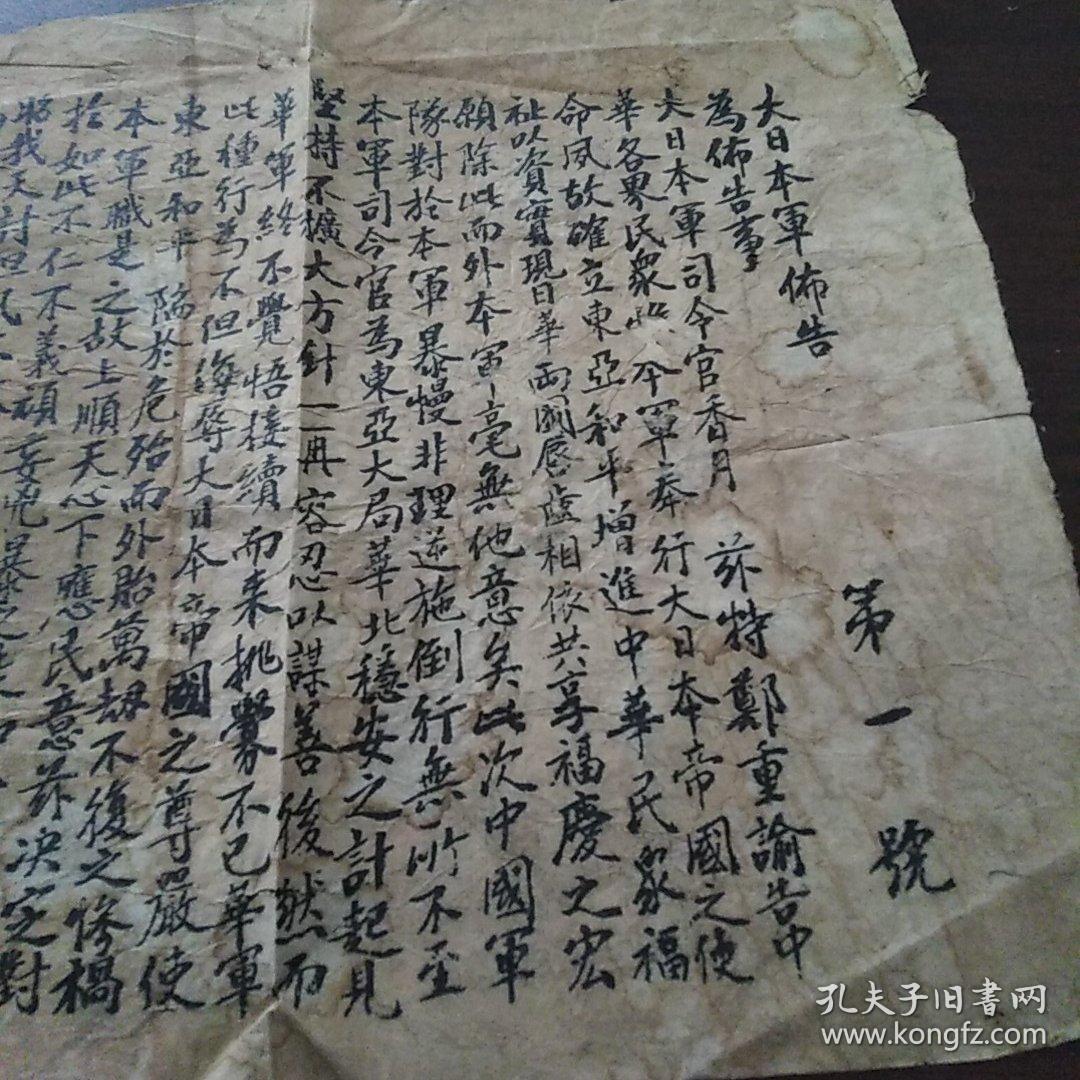 大日本軍佈告 第一號
為佈告事
大日本軍司令官香月 茲特鄭重諭告中
華各界民衆 本軍奉行大日本帝國之使
命夙故確立東亞和平增進中華民衆福
祉以資實現日華兩國唇齒相依共享福慶之宏
願除此而外本軍毫無他意矣此次中國軍
隊對於本軍暴慢非理逆施倒行無所不至
本軍司令官為東亞大局華北穩安之計起見
堅持不擴大方針一再容忍以謀善後然而
華軍終不覺悟接續而来挑釁不已華軍
此種行為不但侮辱大日本帝國之尊嚴使
東亞和平 陥於危殆而外胎萬劫不復之慘禍
本軍職是之故上順天心下應民意茲决定對
於如此不仁不義頑妄兇暴之
將我天討
孔夫子旧书网
www.kongfz.com